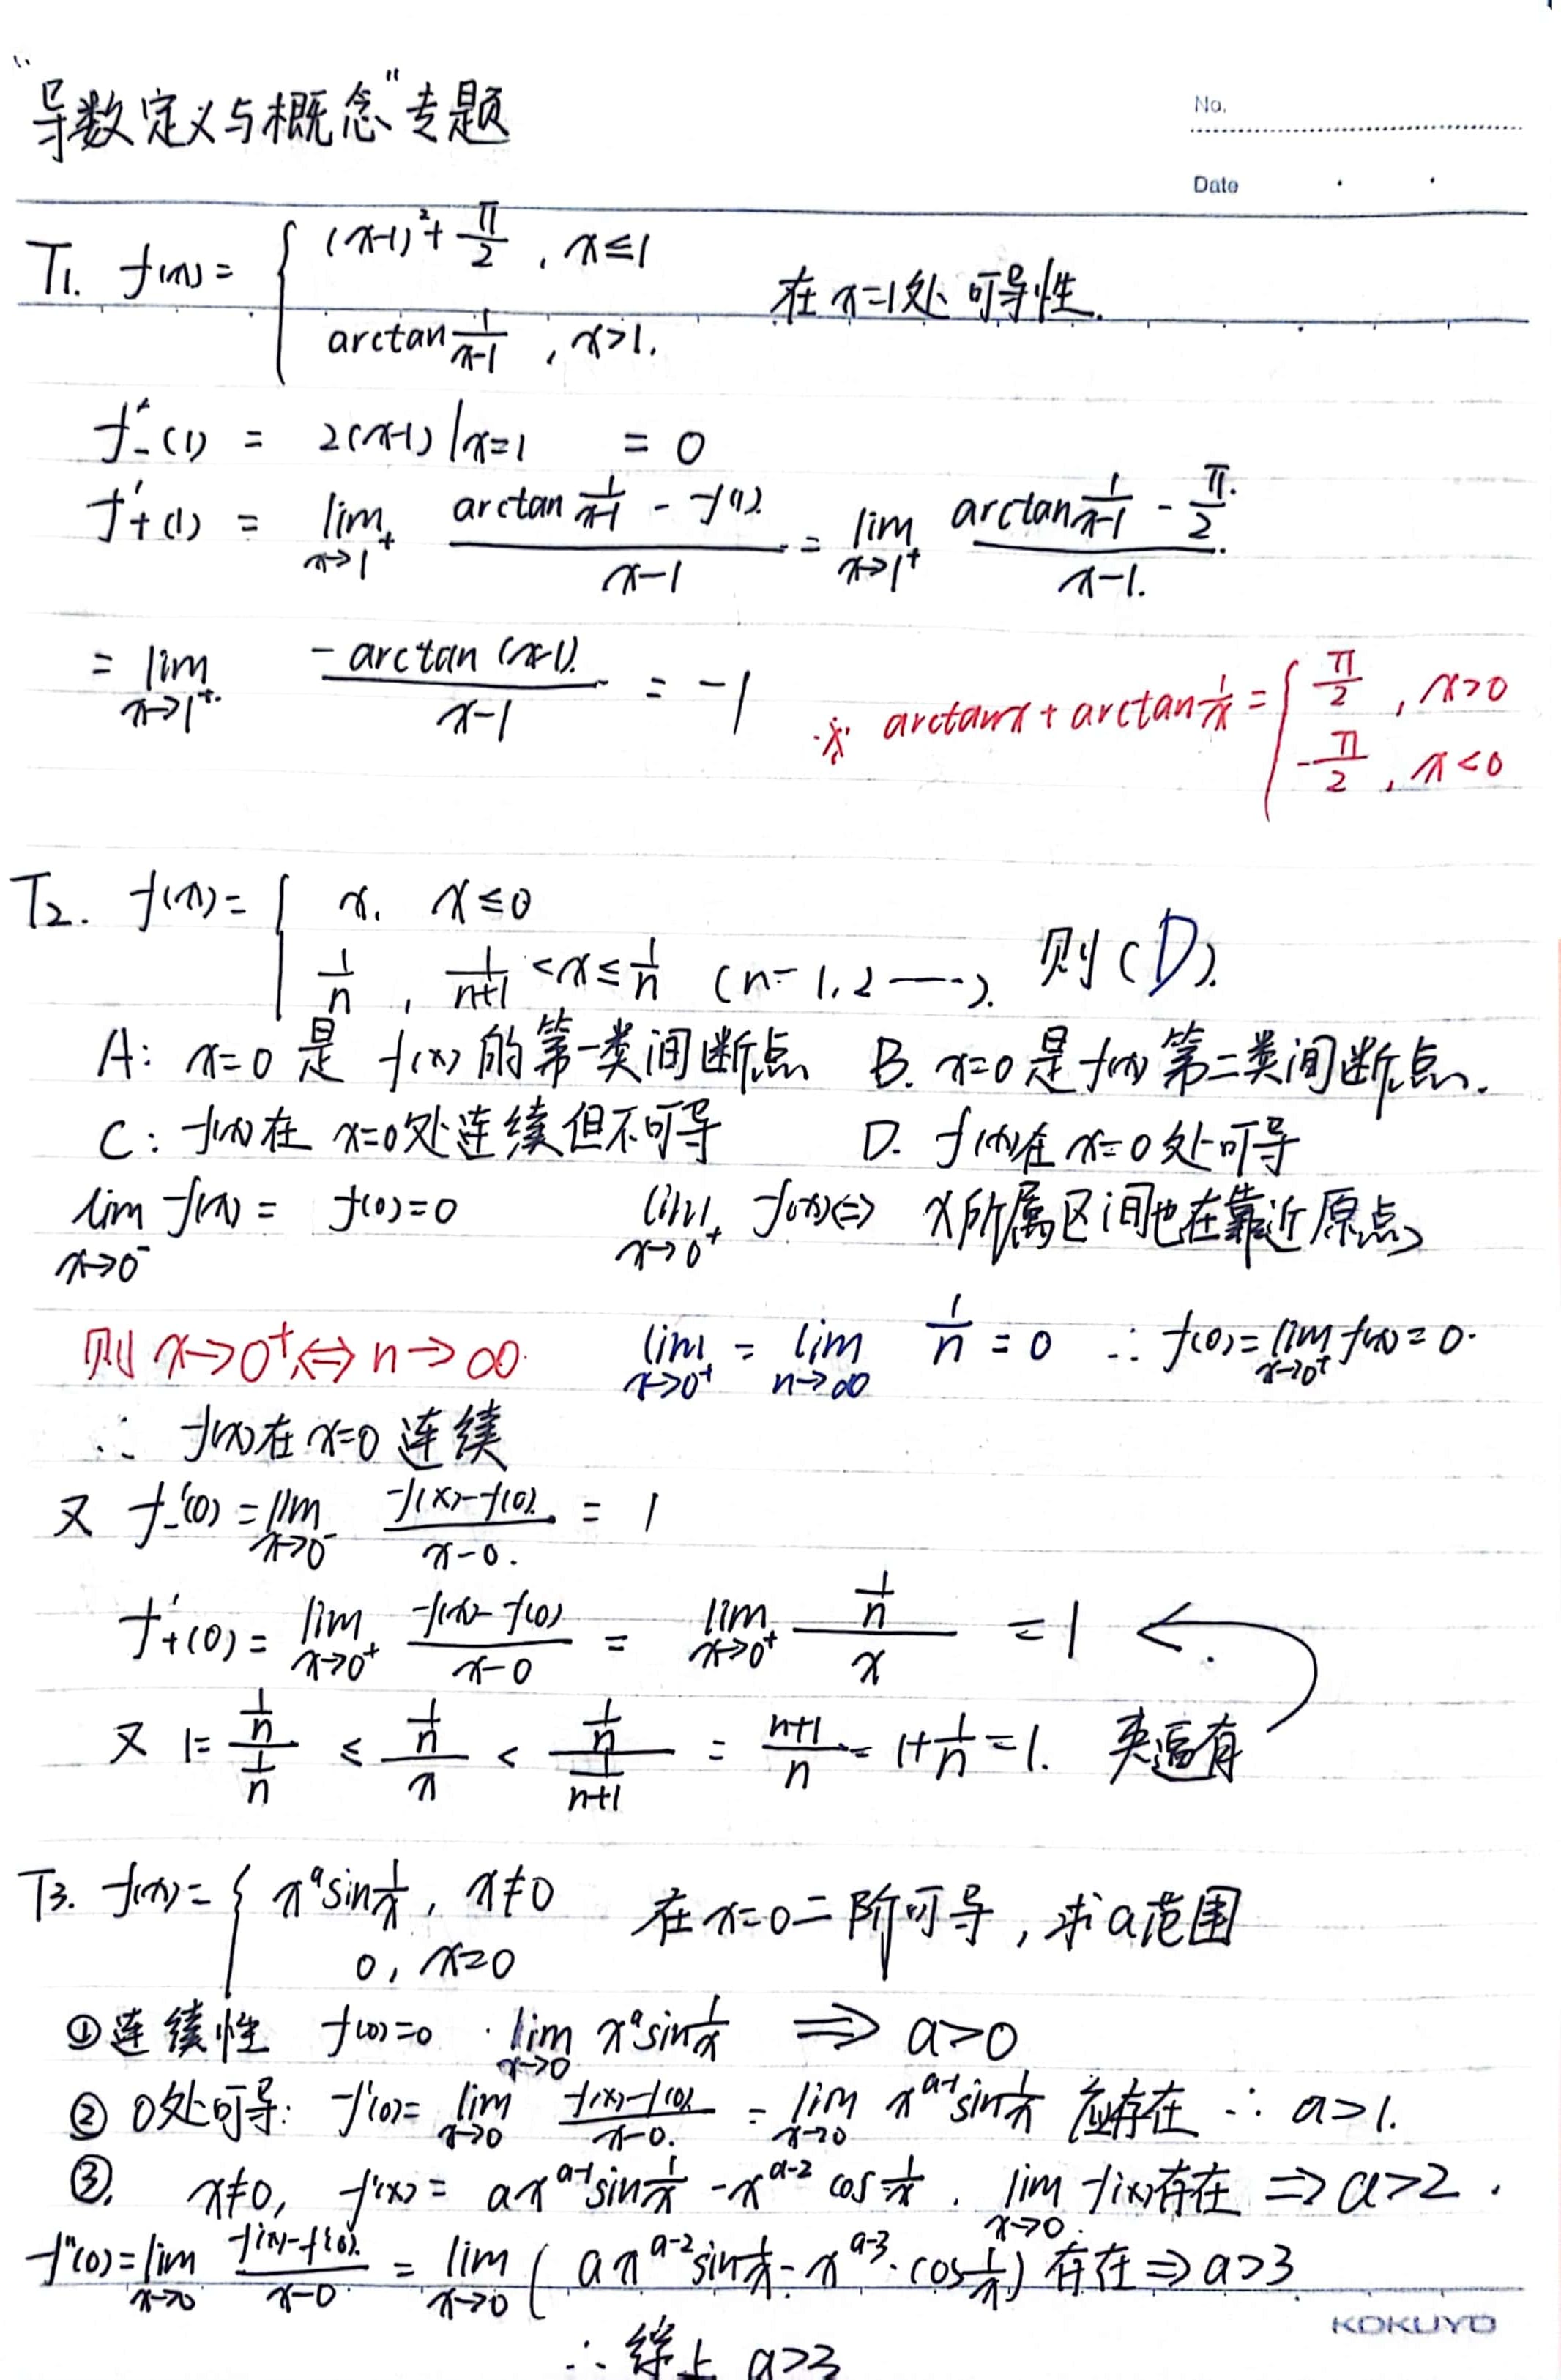 "导数定义与概念"专题
No.
Date
T1. f(x) = { (x-1)² + π/2 , x≤1
arctan 1/(x-1) , x>1. 在x=1处可导性.
f'₋(1) = 2(x-1)|x=1 = 0
f'₊(1) = lim x→1⁺ (arctan 1/(x-1) - f(1))/(x-1) = lim x→1⁺ (arctan 1/(x-1) - π/2)/(x-1).
= lim x→1⁺ (-arctan(x-1))/(x-1) = -1 ※ arctanx + arctan 1/x = { π/2 , x>0
-π/2 , x<0
T2. f(x) = { x, x≤0
1/n , 1/(n+1) < x ≤ 1/n (n= 1,2……). 则(D).
A: x=0是 f(x)的第一类间断点 B. x=0是f(x)第二类间断点.
C: f(x)在 x=0处连续但不可导 D. f(x)在x=0处可导
lim x→0⁻ f(x) = f(0)=0 lim x→0⁺ f(x) ⇔ x所属区间也在靠近原点,
则 x→0⁺ ⇔ n→∞. lim x→0⁺ = lim n→∞ 1/n = 0 ∴ f(0)= lim x→0⁺ f(x) = 0.
∴ f(x)在x=0 连续
又 f₋'(0) = lim x→0⁻ (f(x)-f(0))/(x-0) = 1
f'₊(0) = lim x→0⁺ (f(x)-f(0))/(x-0) = lim x→0⁺ (1/n)/x = 1
又 1= (1/n)/(1/n) ≤ (1/n)/x < (1/n)/(1/(n+1)) = (n+1)/n = 1+1/n = 1. 夹逼有
T3. f(x) = { xᵃ sin 1/x , x≠0
0, x=0 在x=0二阶可导,求a范围
①连续性 f(0)=0 . lim x→0 xᵃ sin 1/x ⇒ a>0
② 0处可导: f'(0)= lim x→0 (f(x)-f(0))/(x-0) = lim x→0 xᵃ⁻¹ sin 1/x 应存在 ∴ a>1.
③. x≠0, f'(x) = axᵃ⁻¹ sin 1/x - xᵃ⁻² cos 1/x . lim x→0 f'(x)存在 ⇒ a>2 .
f''(0) = lim x→0 (f'(x)-f'(0))/(x-0) = lim x→0 ( axᵃ⁻² sin 1/x - xᵃ⁻³·cos 1/x ) 存在 ⇒ a>3
KOKUYO
∴ 综上 a>3